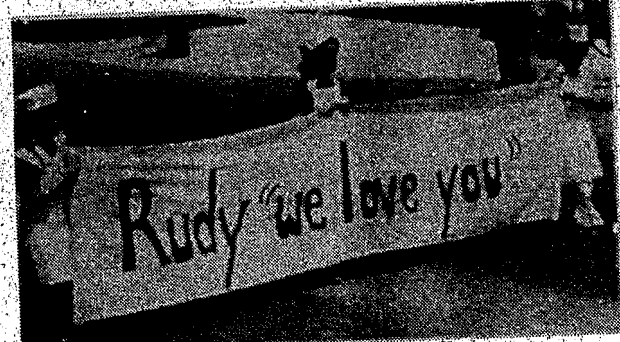 Rudy “we love you”